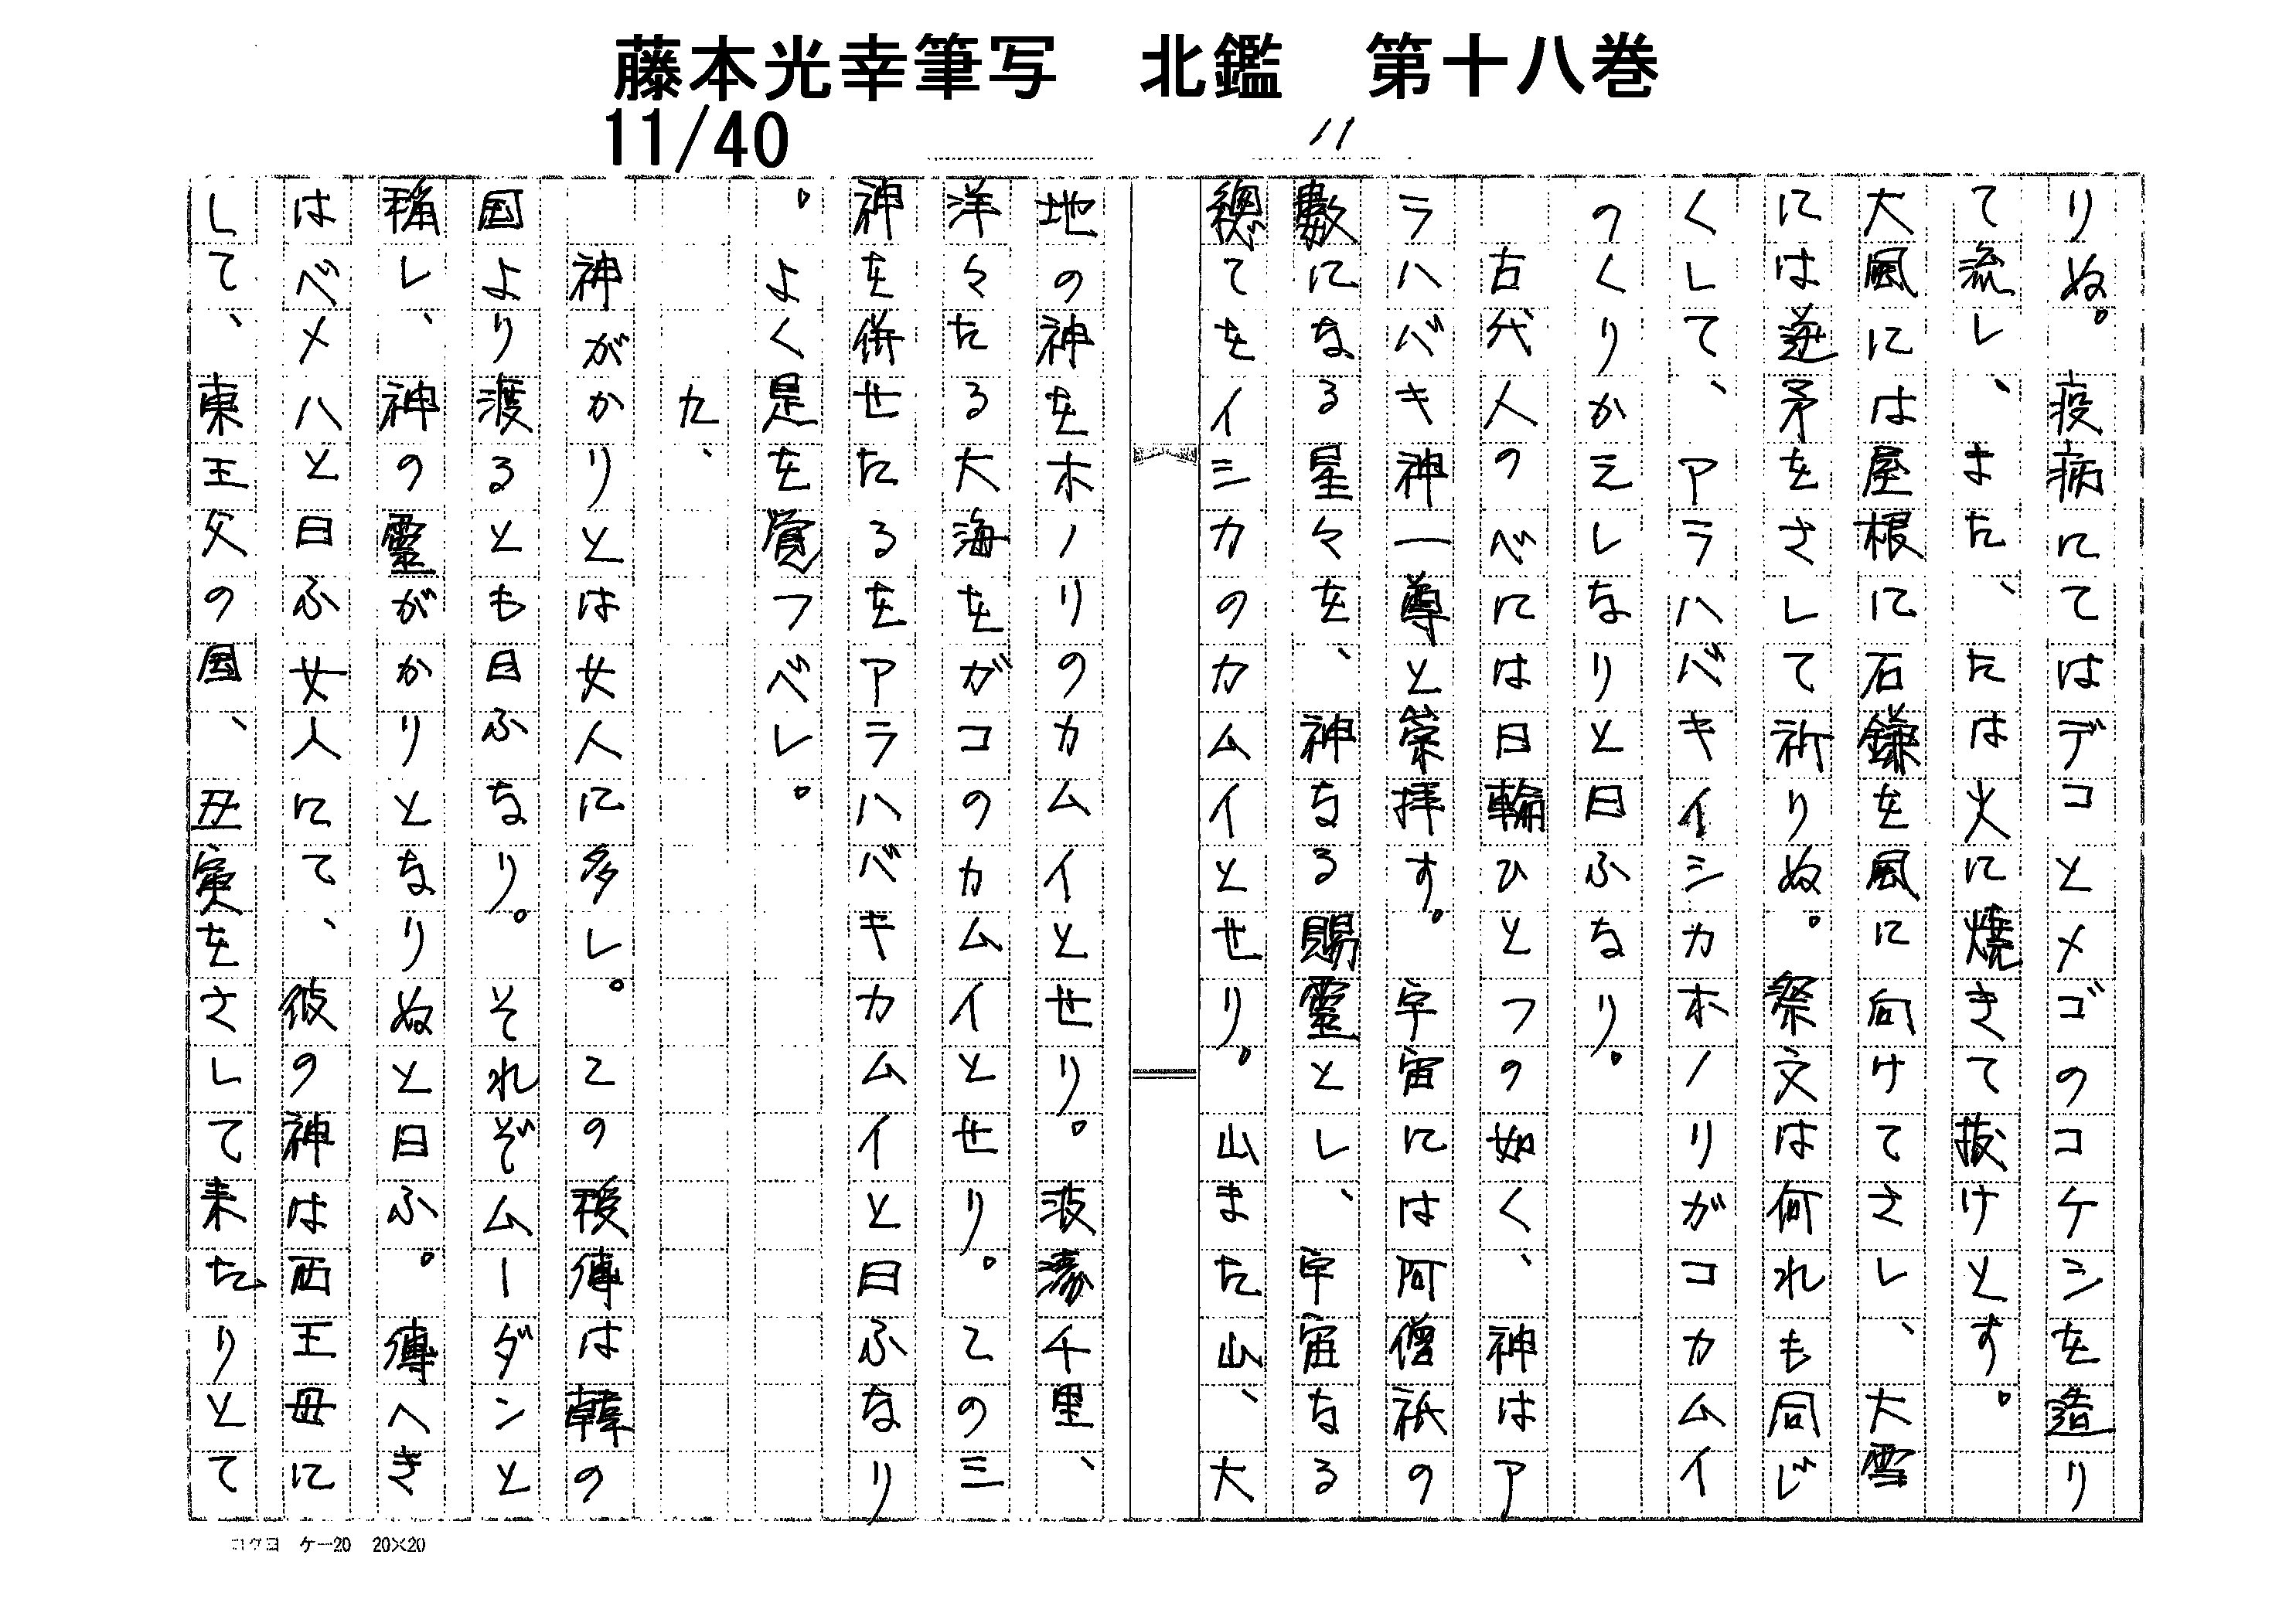 藤本光幸筆写　北鑑　第十八巻
11/40
11
りぬ。疫病にてはデコとメゴのコケシを造り
て流し、また、たは火に焼きて抜けとす。
大風には屋根に石鎌を風に向けてさし、大雪
には逆矛をさして祈りぬ。祭文は何れも同じ
くして、アラハバキイシカホノリガコカムイ
のくりかえしなりと曰ふなり。
古代人のべには日輪ひとつの如く、神はア
ラハバキ神一尊と崇拝す。宇宙には阿僧祇の
數になる星々を、神なる賜靈とし、宇宙なる
總てをイシカのカムイとせり。山また山、大
地の神をホノリのカムイとせり。波濤千里、
洋々たる大海をガコのカムイとせり。この三
神を併せたるをアラハバキカムイと曰ふなり
。よく是を覚つべし。
九、
神がかりとは女人に多し。この稜傳は韓の
国より渡るとも曰ふなり。それぞムーダンと
稱し、神の靈がかりとなりぬと曰ふ。傳へき
はべメハと曰ふ女人にて、彼の神は西王母に
して、東王父の国、丑寅をさして来たりとて
コクヨ　ケー20　20×20